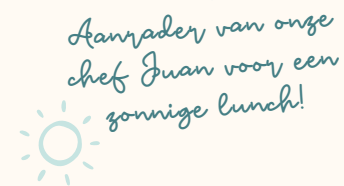 Aanrader van onze
chef Juan voor een
zonnige lunch!